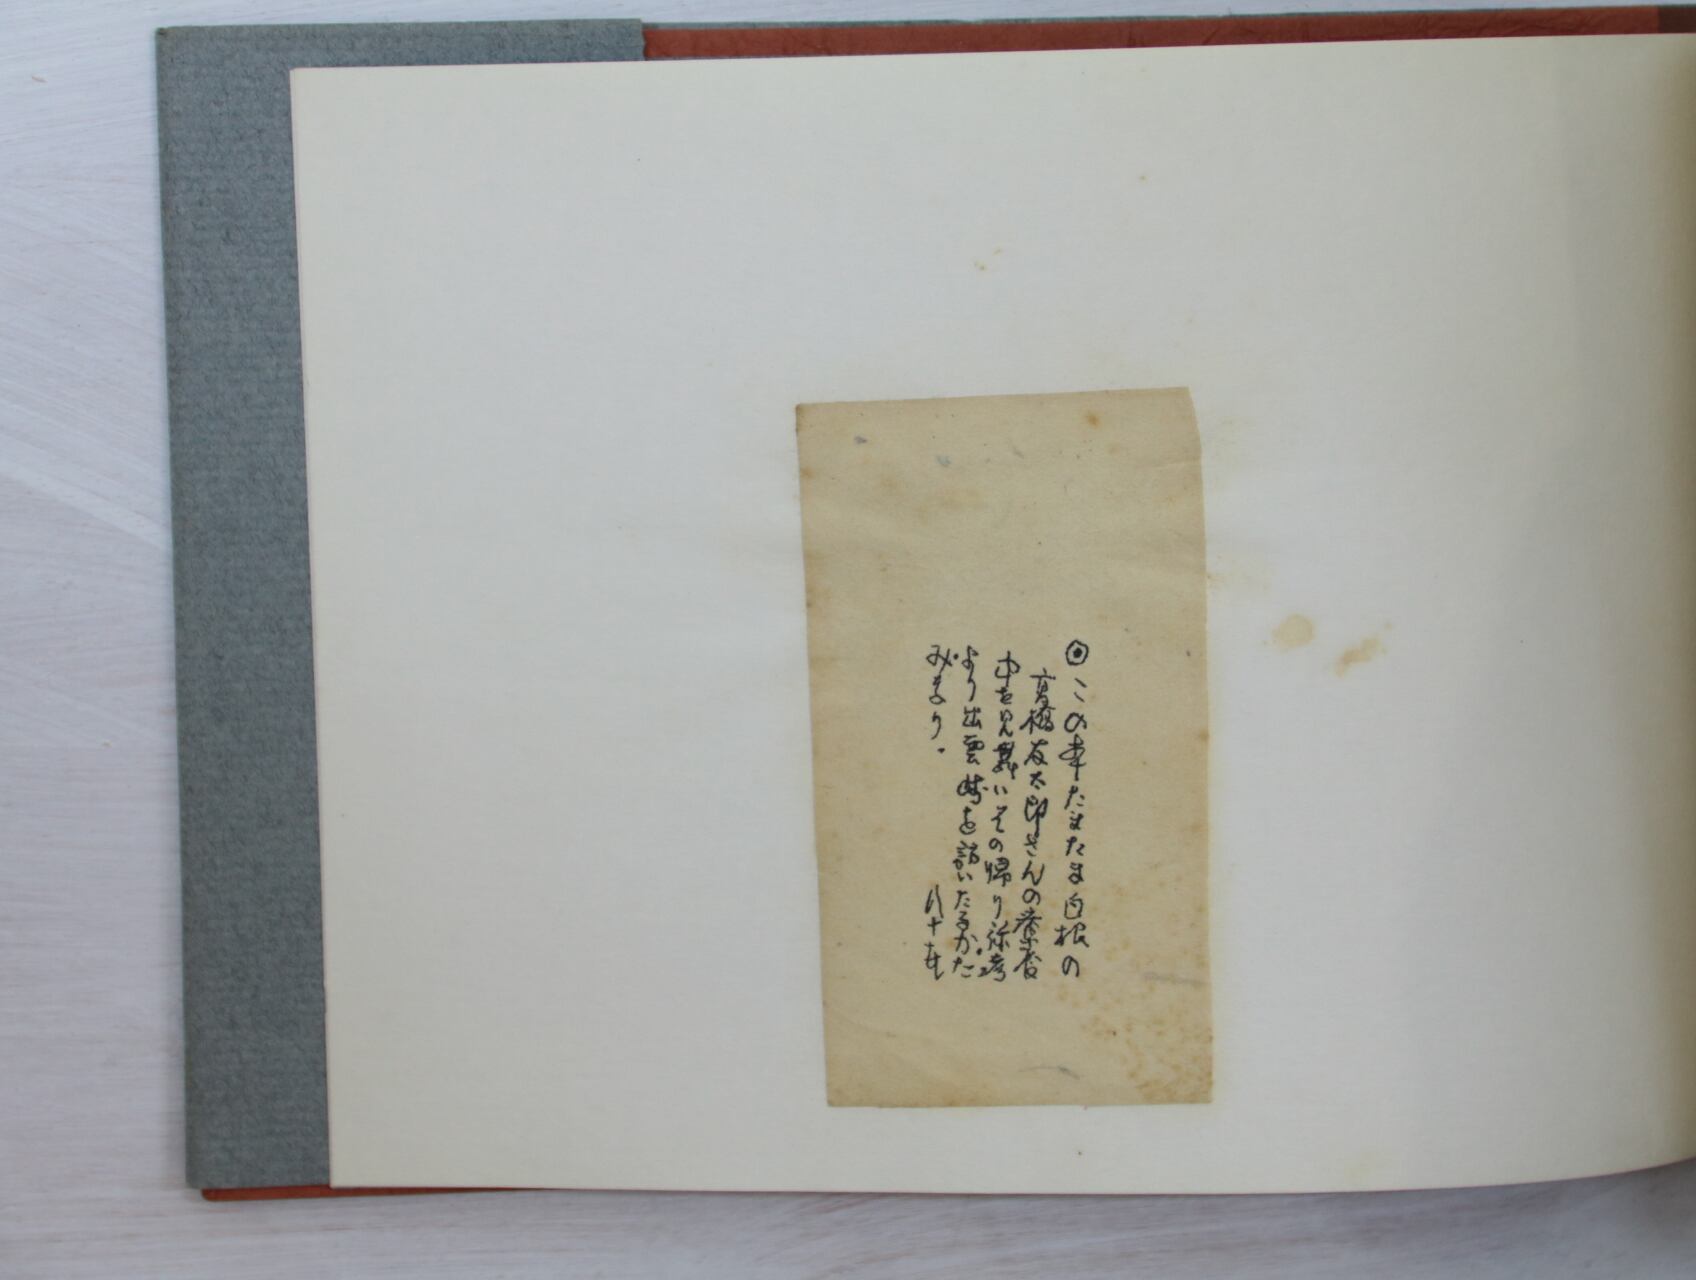 ◎この本たまたま白根の
高橋友太郎さんの療養
中を見舞いその帰り弥彦
より出雲崎を訪いたるかた
みなり.